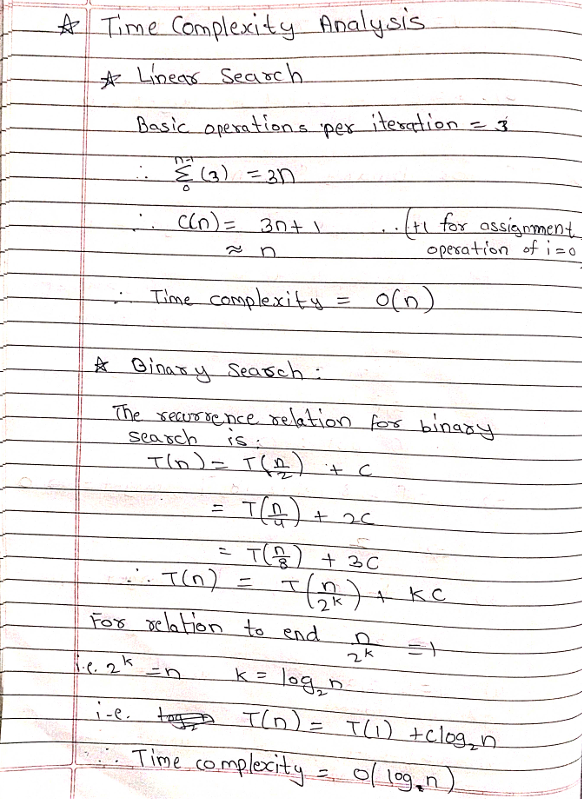 ☆ Time Complexity Analysis
☆ Linear Search
Basic operations per iteration = 3
∴ n-1 Σ 0 (3) = 3n
∴ C(n) = 3n + 1 ..(+1 for assignment
≈ n operation of i=0
∴ Time complexity = O(n)
☆ Binary Search :
The recurrence relation for binary
search is :
T(n) = T(n/2) + C
= T(n/4) + 2C
= T(n/8) + 3C
∴ T(n) = T(n/2^k) + KC
For relation to end n/2^k = 1
i.e. 2^k = n k = log₂n
i.e. T(n) = T(1) + clog₂n
∴ Time complexity = O(log₂n)